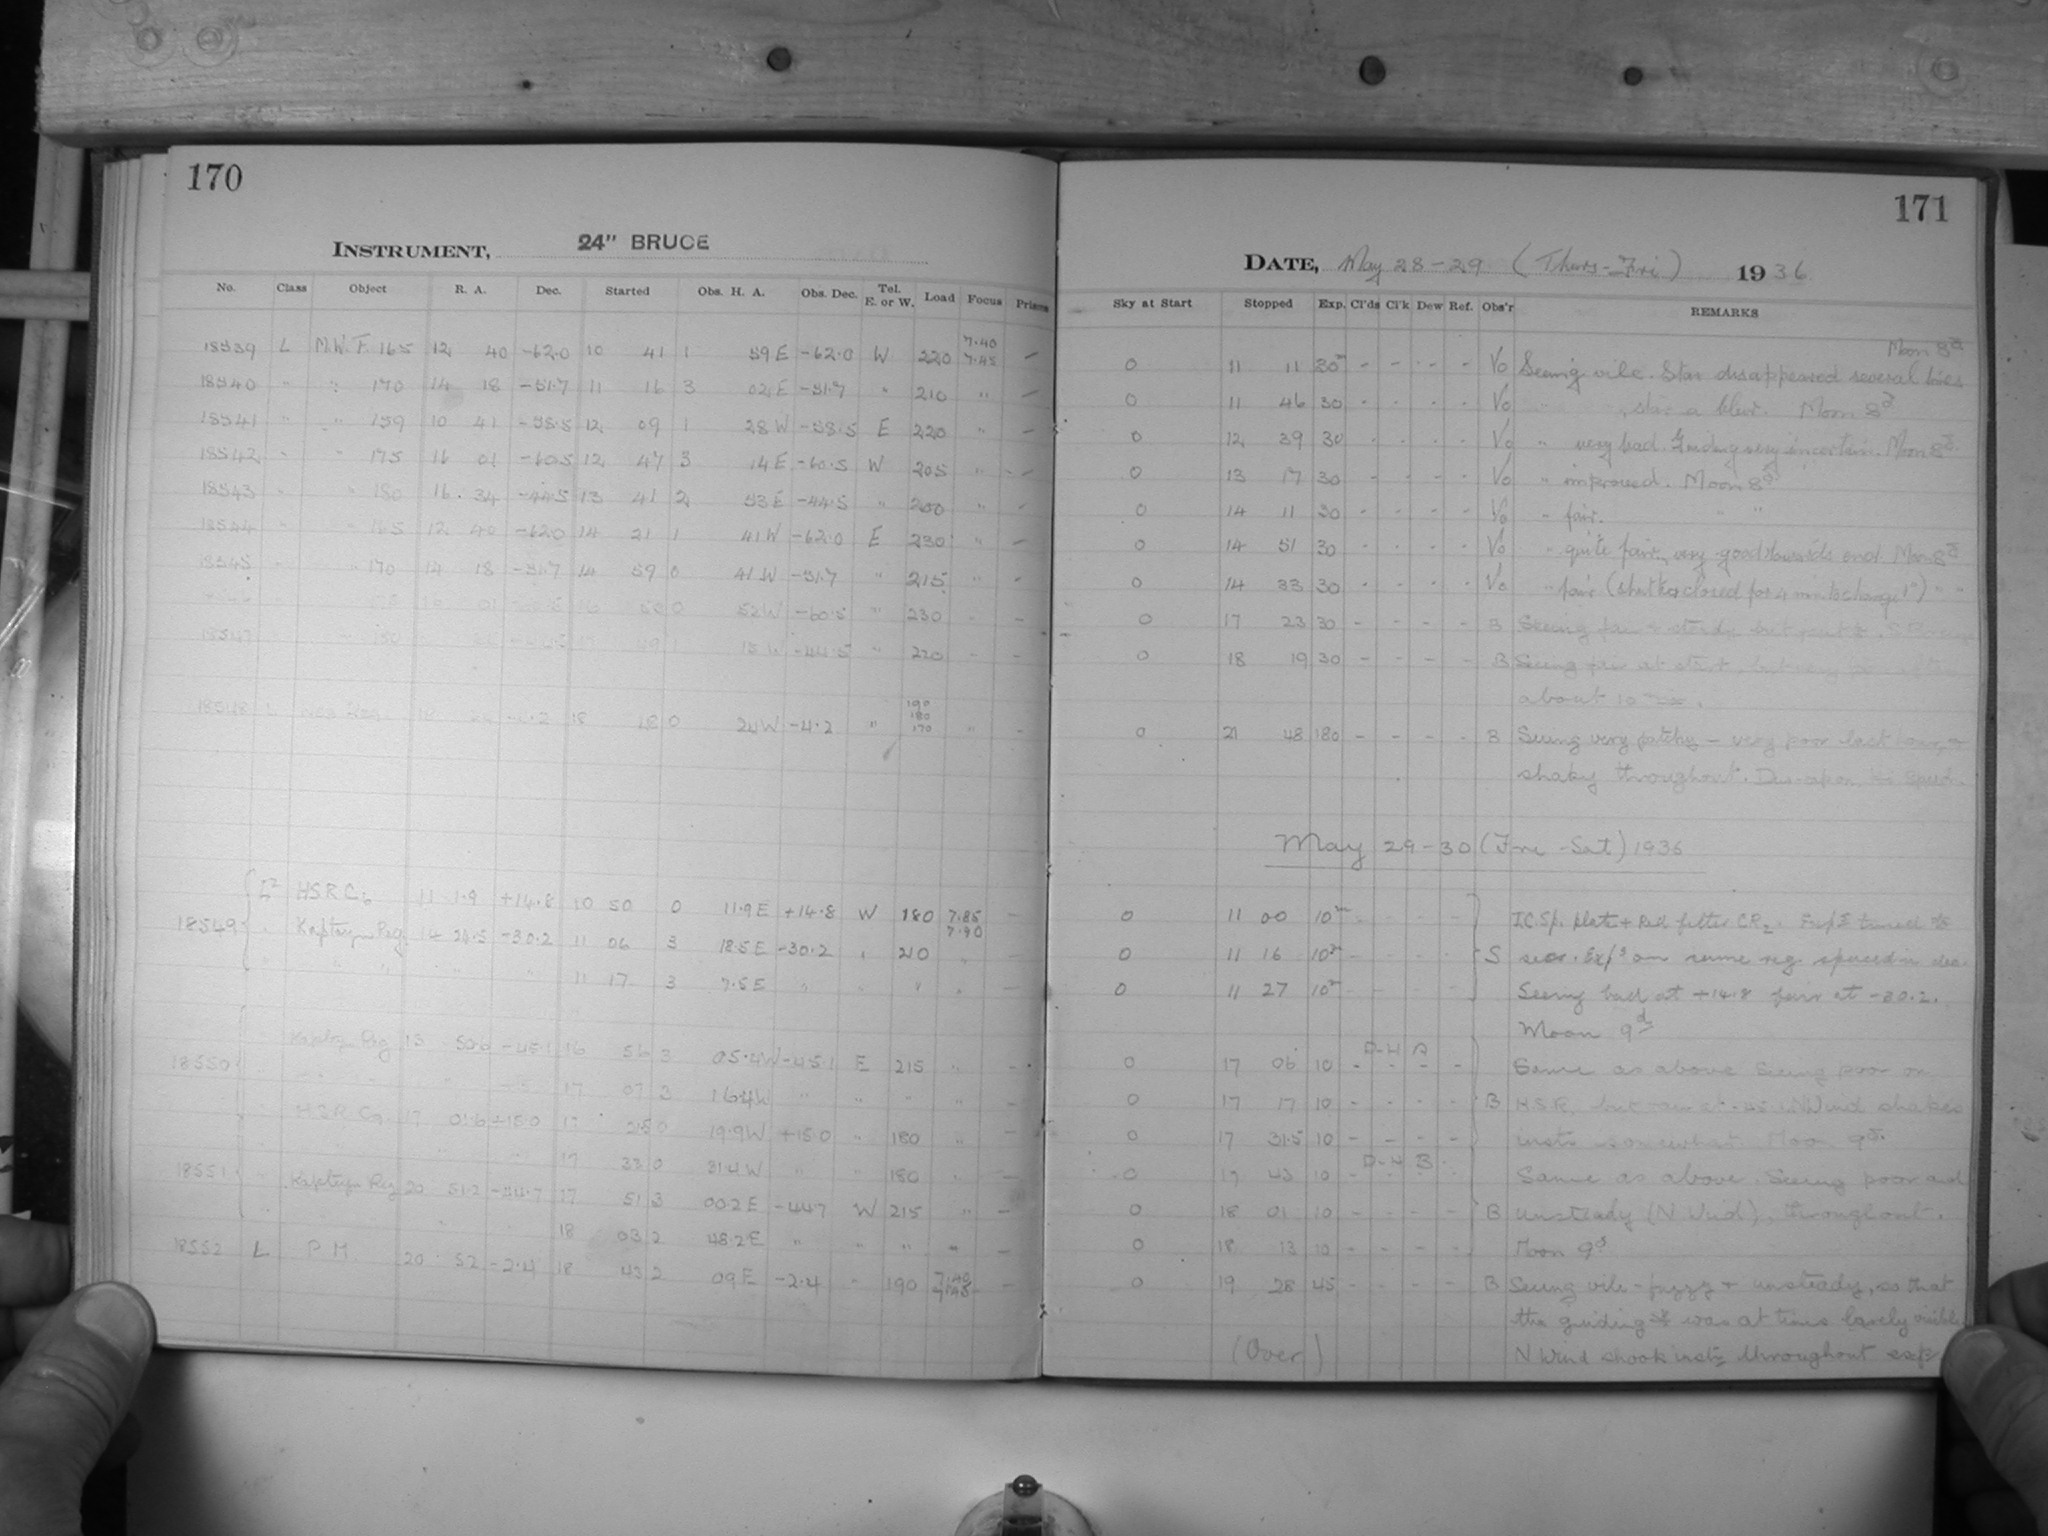 170
INSTRUMENT, 24" BRUCE
No. Class Object R. A. Dec. Started Obs. H. A. Obs. Dec. Tel. E. or W. Load Focus Prisms
7.40
18539 L M.W.F. 165 12 40 -62.0 10 41 1 59 E -62.0 W 220 7.45 -
18540 " " 170 14 18 -51.7 11 16 3 02 E -51.7 " 210 " -
18541 " " 159 10 41 -58.5 12 09 1 28 W -58.5 E 220 " -
18542 " " 175 16 01 -60.5 12 47 3 14 E -60.5 W 205 " -
18543 " " 180 16 34 -44.5 13 41 2 53 E -44.5 " 200 " -
18544 " " 165 12 40 -62.0 14 21 1 41 W -62.0 E 230 " -
18545 " " 170 14 18 -51.7 14 59 0 41 W -51.7 " 215 " -
52 W -60.5 " 230 " -
18547 " " 180 15 W -44.5 " 220 - -
190
180
18548 L 18 48 0 24 W -4.2 " 170 " -
L2 HSR C6 11 1.9 +14.8 10 50 0 11.9 E +14.8 W 180 7.85 -
7.90
18549 " Kapteyn Reg. 14 24.5 -30.2 11 06 3 18.5 E -30.2 " 210 " -
" " " " " 11 17 3 7.5 E " " " " -
Kapteyn Reg 15 50.6 -45.1 16 56 3 05.4 W -45.1 E 215 " -
18550 17 07 3 16.4 W " " " " -
H.S.R. C9 17 01.6 +15.0 17 21.5 0 19.9 W +15.0 " 180 " -
17 33 0 31.4 W " " 180 " -
18551 Kapteyn Reg 20 51.2 -44.7 17 51 3 00.2 E -44.7 W 215 " -
18 03 2 48.2 E " " " " -
18552 L P.M. 20 52 -2.4 18 43 2 09 E -2.4 " 190 7.40 -
171
DATE, May 28-29 (Thurs-Fri) 1936
Sky at Start Stopped Exp. Cl'ds Cl'k Dew Ref. Obs'r REMARKS
Moon 8d
0 11 11 30m - - - - Vo Seeing vile. Star disappeared several times
0 11 46 30 - - - - Vo " " star a blur. Moon 8d
0 12 39 30 - - - - Vo " very bad. Guiding very uncertain. Moon 8d.
0 13 17 30 - - - - Vo " improved. Moon 8d
0 14 11 30 - - - - Vo " fair. " "
0 14 51 30 - - - - Vo " quite fair, very good towards end. Moon 8d
0 14 33 30 - - - - Vo " fair (shutter closed for 4 min to change) " "
0 17 23 30 - - - - B Seeing fair + steady but
0 18 19 30 - - - - B Seeing fair at start, but very
about 10
0 21 48 180 - - - - B Seeing very patchy - very poor last hour, +
shaky throughout. Dew-cap on
May 29-30 (Fri-Sat) 1936
0 11 00 10m - - - - I.C. Sp. plate + Red filter CR2. timed to
0 11 16 10m - - - - S secs. Exps on same reg. spaced in dec.
0 11 27 10m - - - - Seeing bad at +14.8 fair at -30.2.
Moon 9d
D-H A
0 17 06 10 - - - - Same as above Seeing poor on
0 17 17 10 - - - - B H.S.R. but fair at -45. N Wind shakes
0 17 31.5 10 - - - - instr somewhat. Moon 9d.
D-H B
0 17 43 10 - Same as above. Seeing poor and
0 18 01 10 - - - - B unsteady (N Wind), throughout.
0 18 13 10 - - - - Moon 9d
0 19 28 45 - - - - B Seeing vile - fuzzy + unsteady, so that
the guiding * was at times barely visible
(Over) N Wind shook instr throughout exp.